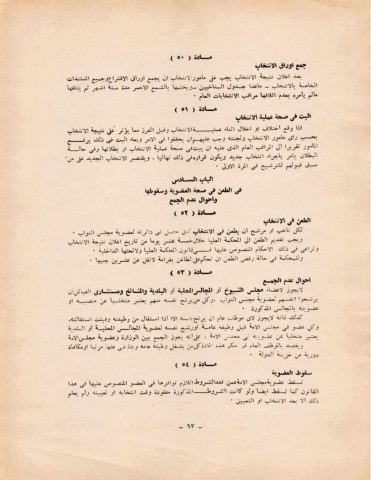 مـادة ( ٥٠ )
جمع اوراق الانتخاب
بعد اعلان نتيجة الانتخاب يجب على مأمور الانتخاب ان يجمع اوراق الاقتراع وجميع المستندات
الخاصة بالانتخاب ـ ماعدا جدول الناخبين سريختمها بالشمع الاحمر لمدة ستة اشهر ثم يتلفها
مالم يأمره بعدم اتلافها مراقب الانتخابات العام .
مـادة ( ٥١ )
البت في صحة عملية الانتخاب
اذا وقع اختلاف او اخلال اثناء عملية الانتخاب وقبل الفرز مما يؤثر على نتيجة الانتخاب
بحسب رأى مأمور الانتخاب ولجنته وجب عليهم ان يحققوا في الامر وبعد البت في ذلك يرفع
مأمور تقريرا الى المراقب العام الذى عليه ان يبت في صحة عملية الانتخاب او بطلانها وفي حالة
البطلان يأمر باجراء انتخاب جديد ويكون قراره في ذلك نهائيا ، ويقتصر الانتخاب الجديد على من
سبق قبولهم للترشيح في المرة الاولى .
الباب السادس
في الطعن في صحة العضوية وسقوطها
واحوال عدم الجمع
مـادة ( ٥٢ )
الطعن في الانتخاب
لكل ناخب او مرشح ان يطعن في الانتخاب الذى حصل في دائرته لعضوية مجلس النواب .
ويجب تقديم الطعن الى المحكمة العليا خلال خمسة عشر يوما من تاريخ اعلان نتيجة الانتخاب
وتراعى في ذلك الاحكام المنصوص عليها في قانون المحكمة العليا ولائحتها الداخلية .
وللمحكمة في حالة رفض الطعن ان تحكم على الطاعن بغرامة لاتقل عن عشرين جنيها
مـادة ( ٥٣ )
احوال عدم الجمع
لايجوز لاعضاء مجلس الشيوخ او المجالس المحلية او البلدية والمشايخ ومستشارى القبائل ان
يرشحوا انفسهم لعضوية مجلس النواب ، وكل من يرشح نفسه منهم يعتبر متخليا عن منصبه او
عضويته بالمجالس المذكورة .
كذلك لايجوز لاى موظف عام ان يرشح نفسه الا اذا استقال من وظيفته وقبلت استقالته،
وكل عضو في مجلس الامة قبل وظيفة عامة او رشح نفسه لعضوية المجالس المحلية او البلدية
يعتبر متخليا عن عضويته في مجلس الامة ، على أنه يجوز الجمع بين الوزارة وعضوية مجلس الامة
ويقصد بالموظف العام في حكم هذه المادة كل من يشغل وظيفة عامة ويتقاضى عنها مرتبا او مكافأة
دورية من خزينة الدولة .
مـادة ( ٥٤ )
سقوط العضوية
تسقط عضوية مجلس الامة عمن فقد الشروط اللازم توافرها في العضو المنصوص عليها في هذا
القانون كما تسقط ايضا ولو كانت الشروط المذكورة مفقودة وقت انتخابه او تعيينه ولم يعلم
ذلك الا بعد الانتخاب او التعيين .
ـ ٦٣ ـ